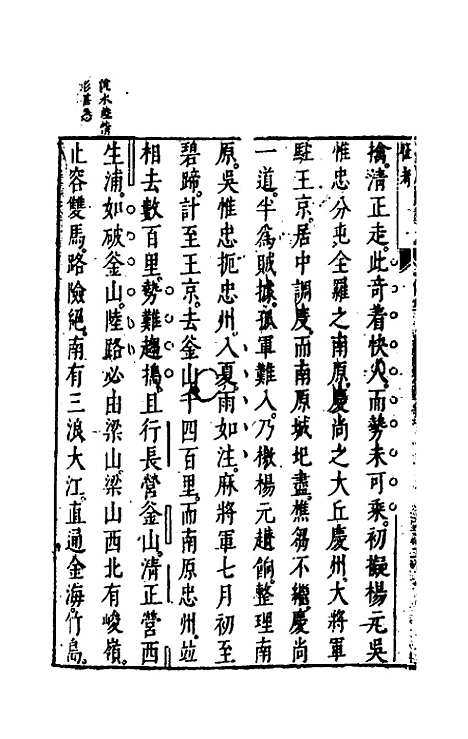 擒清正走此奇着快人而勢未可乘初擬楊元吳
惟忠分屯全羅之南原慶尚之大丘慶州大將軍
駐王京居中調度而南原城圮盡樵芻不繼慶尚
一道半為賊據孤軍難入乃檄楊元趲餉整理南
原吳惟忠扼忠州入夏雨如注麻將軍七月初至
碧蹄計至王京去釜山千四百里而南原忠州竝
相去數百里勢難趨搗且行長營釜山清正營西
生浦如破釜山陸路必由梁山梁山西北有峻嶺
止容雙馬路險絕南有三浪大江直通金海竹島
水陸情